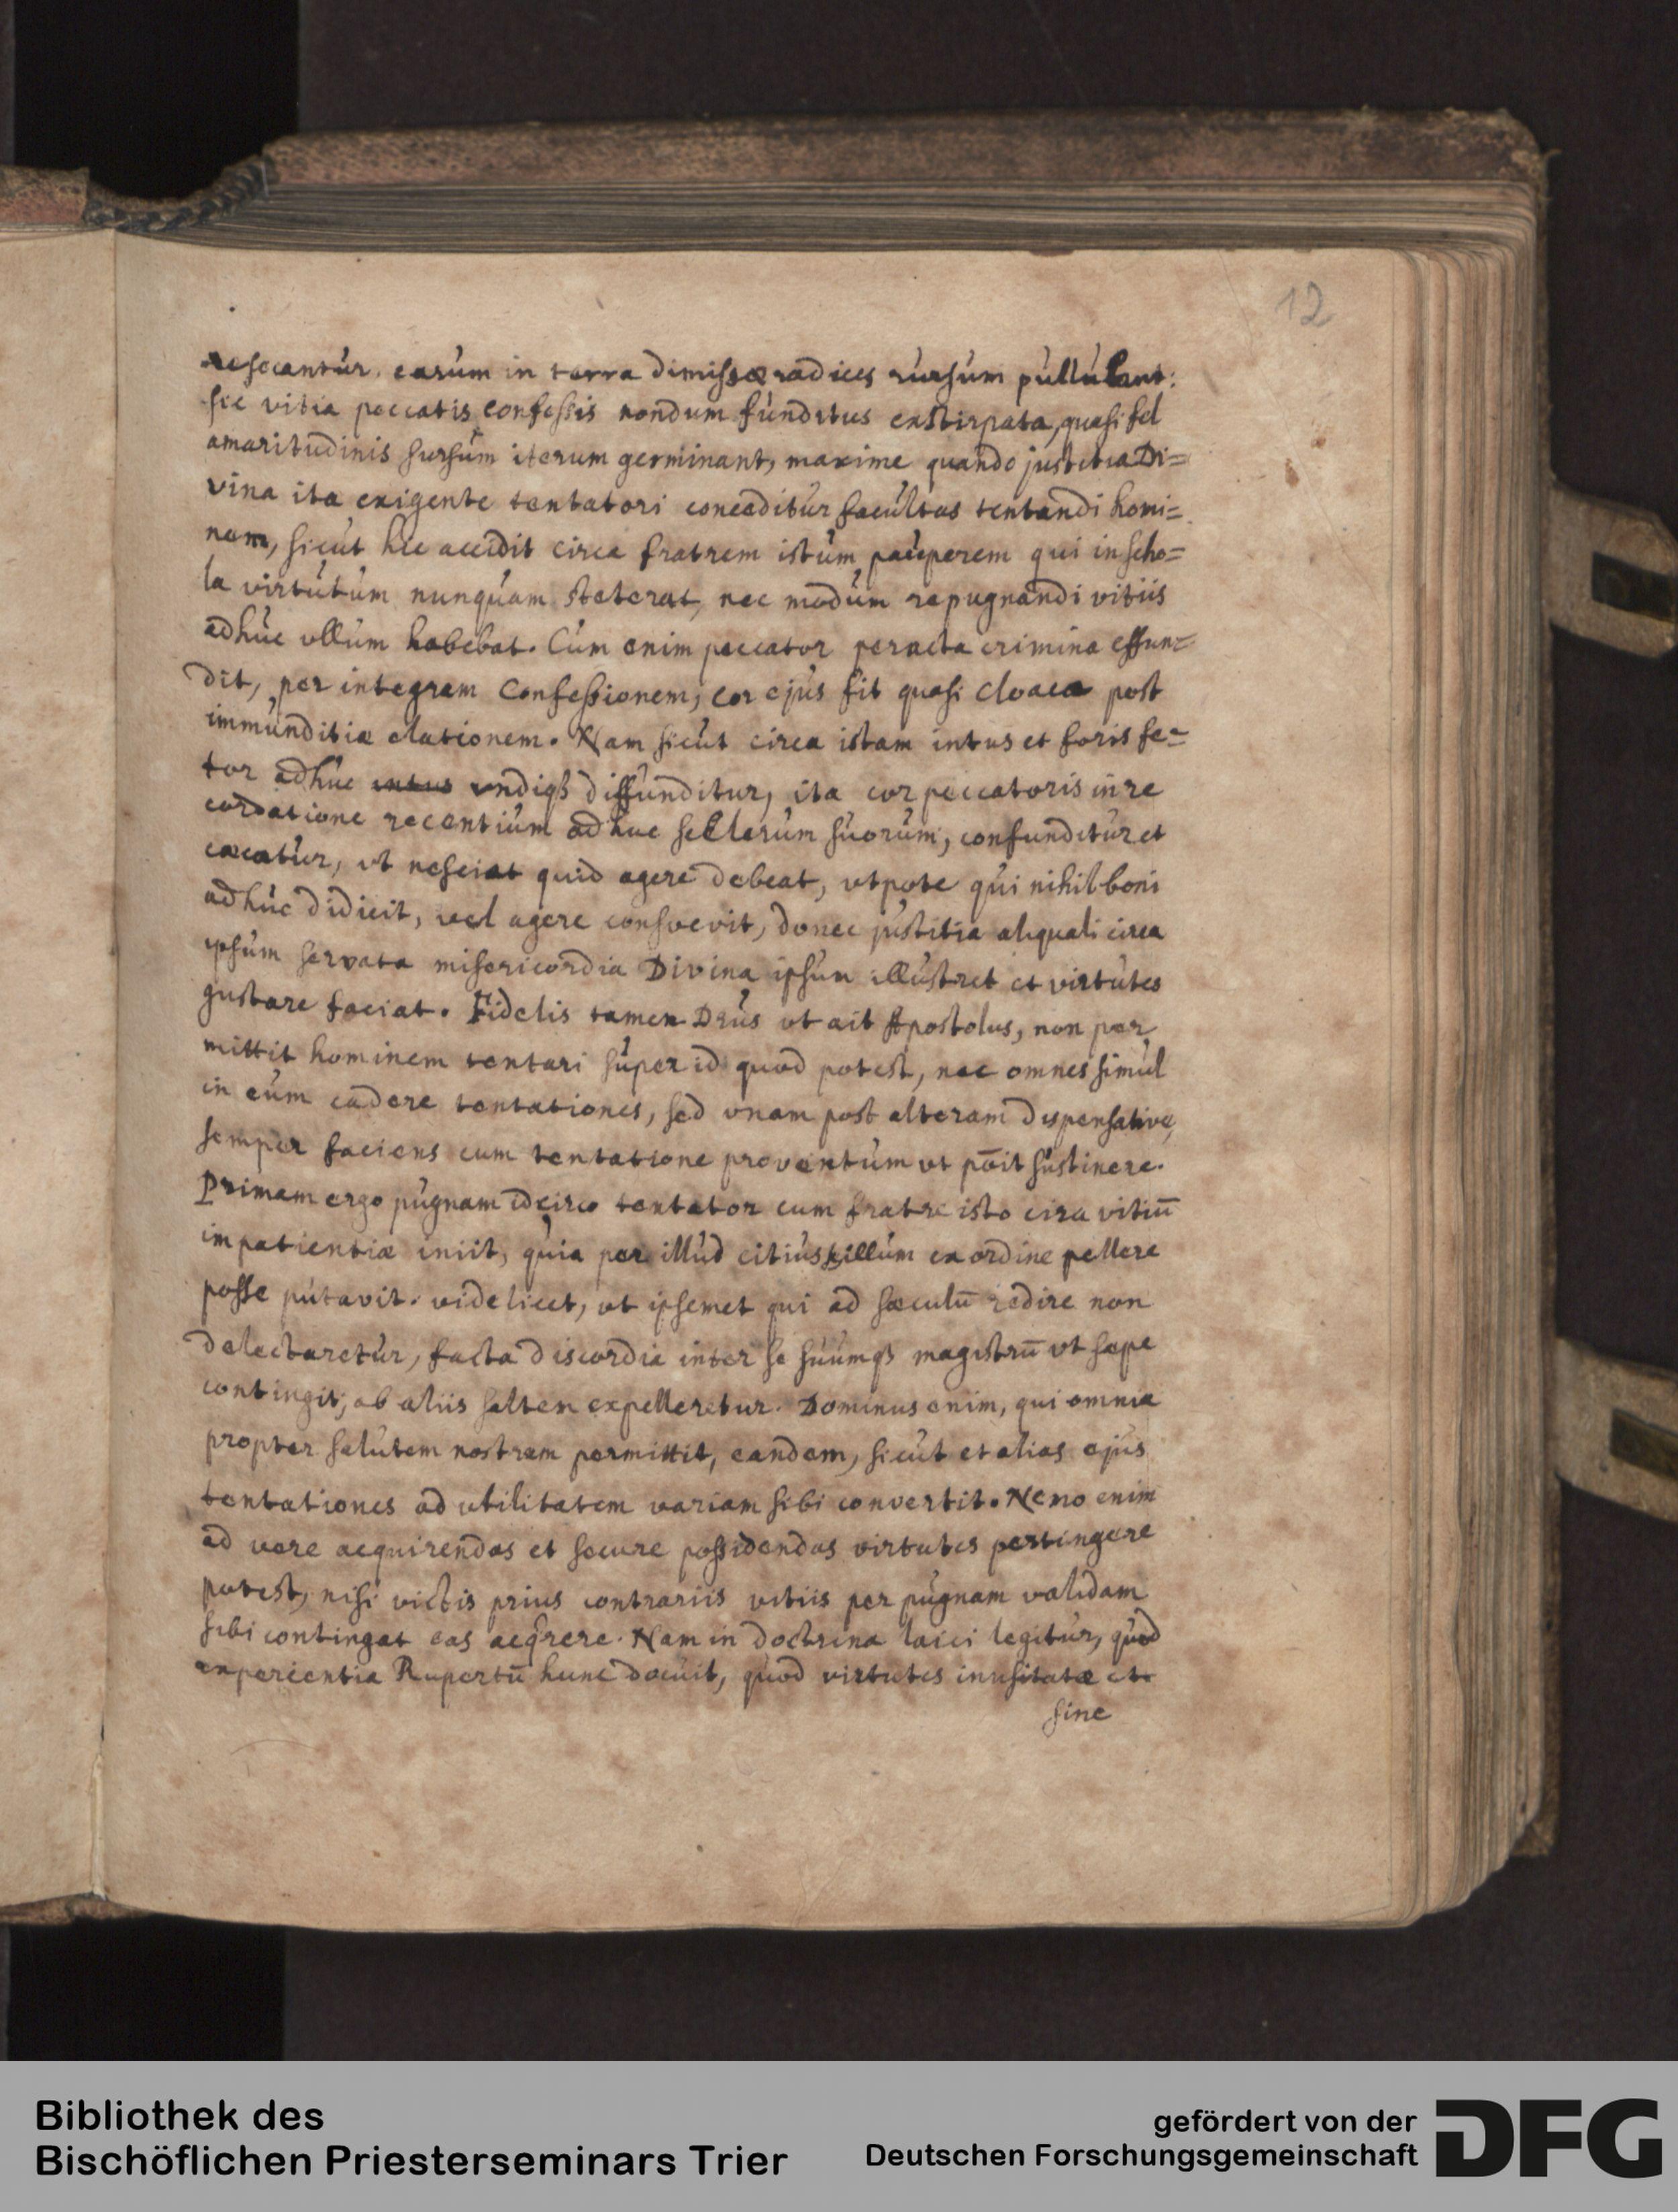 12
resecantur, earum in terra dimissæ radices rursum pullulant:
sic vitia peccatis confessis nondum funditus exstirpata, quasi fel
amaritudinis sursum iterum germinant, maxime quando justitia Di=
vina ita exigente tentatori conceditur facultas tentandi homi=
nem, sicut hic accidit circa fratrem istum pauperem qui in scho=
la virtutum nunquam steterat, nec modum repugnandi vitiis
adhuc ullum habebat. Cum enim peccator peracta crimina effun=
dit, per integram Confessionem, cor ejus fit quasi cloaca post
immunditiæ elationem. Nam sicut circa istam intus et foris fe=
tor adhuc intus undiqȝ diffunditur, ita cor peccatoris in re
cordatione recentium adhuc scelerum suorum, confunditur et
cæcatur, ut nesciat quid agere debeat, utpote qui nihil boni
adhuc didicit, vel agere consvevit, donec justitia aliquali circa
ipsum servata misericordia Divina ipsum illustret et virtutes
gustare faciat. Fidelis tamen Deus ut ait Apostolus, non per
mittit hominem tentari super id quod potest, nec omnes simul
in eum cadere tentationes, sed unam post alteram dispensative,
semper faciens cum tentatione proventum ut pōit sustinere.
Primam ergo pugnam idcirco tentator cum fratre isto circa vitiū
impatientiæ iniit, quia per illud citius illum ex ordine pellere
posse putavit. videlicet, ut ipsemet qui ad sæculū redire non
delectaretur, facta discordia inter se suumqȝ magistrū ut sæpe
contingit, ab aliis saltem expelleretur. Dominus enim, qui omnia
propter salutem nostram permittit, eandem, sicut et alias ejus
tentationes ad utilitatem variam sibi convertit. Nemo enim
ad vere acquirendas et secure possidendas virtutes pertingere
potest, nisi victis prius contrariis vitiis per pugnam validam
sibi contingat eas acqrere. Nam in doctrina laici legitur, quod
experientia Rupertū hunc docuit, quod virtutes inusitatæ et
sine
Bibliothek des
Bischöflichen Priesterseminars Trier
gefördert von der
Deutschen Forschungsgemeinschaft
DFG